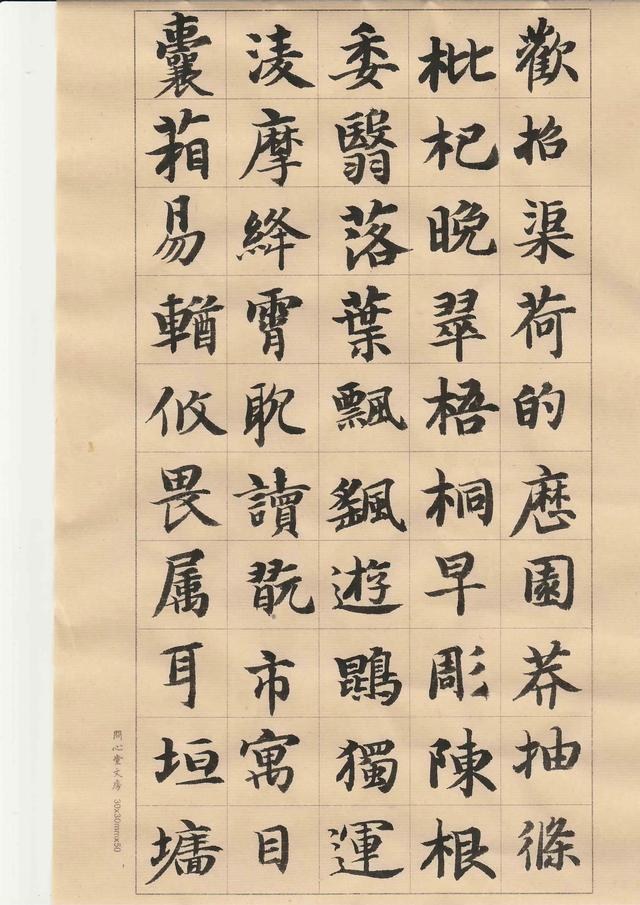 歡招渠荷的歷園莽抽條
枇杷晚翠梧桐早彫陳根
委翳落葉飄颻遊鵾獨運
淩摩絳霄耽讀翫市寓目
囊葙易輶攸畏属耳垣墻
問心堂文房 30x30mmx50